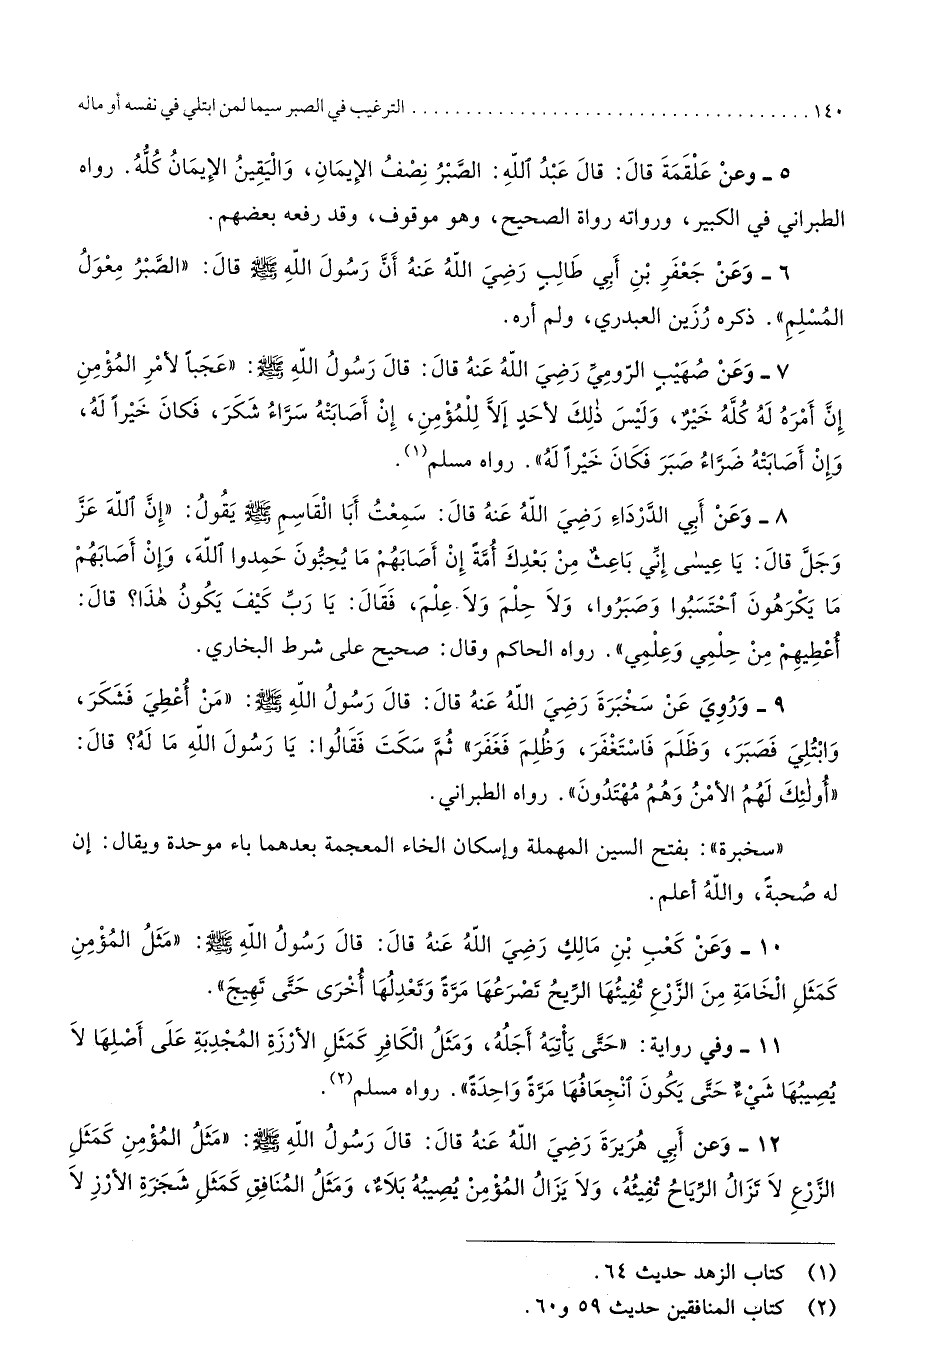 ١٤٠ . . . . . . . . . . . . . . . . . . . . . . . . . . . . . . . . . . . . الترغيب في الصبر سيما لمن ابتلي في نفسه أو ماله
٥ ـ وعنْ عَلْقَمَةَ قالَ: قالَ عَبْدُ ٱللّهِ: الصَّبْرُ نِصْفُ الإيمَانِ، وَالْيَقِينُ الإيمَانُ كُلُّهُ. رواه
الطبراني في الكبير، ورواته رواة الصحيح، وهو موقوف، وقد رفعه بعضهم.
٦ ـ وَعَنْ جَعْفَرِ بْنِ أَبِي طَالِبٍ رَضِيَ اللّهُ عَنهُ أَنَّ رَسُولَ اللّهِ ﷺ قالَ: «الصَّبْرُ مِعْوَلُ
المُسْلِمِ». ذكره رُزَين العبدري، ولم أره.
٧ ـ وَعَنْ صُهَيْبِ الرّومِيِّ رَضِيَ اللّهُ عَنهُ قالَ: قالَ رَسُولُ اللّهِ ﷺ: «عَجَباً لأمْرِ المُؤْمِنِ
إنَّ أَمْرَهُ لَهُ كُلَّهُ خَيْرٌ، وَلَيْسَ ذٰلِكَ لأحَدٍ إلاَّ لِلْمُؤْمِنِ، إنْ أَصَابَتْهُ سَرَّاءُ شَكَرَ، فَكانَ خَيْراً لَهُ،
وَإنْ أَصَابَتْهُ ضَرَّاءُ صَبَرَ فَكانَ خَيْراً لَهُ». رواه مسلم(١).
٨ ـ وَعَنْ أَبي الدَّرْدَاءِ رَضِيَ اللّهُ عَنهُ قالَ: سَمِعْتُ أَبَا الْقَاسِمِ ﷺ يَقُولُ: «إنَّ اللّهَ عَزَّ
وَجَلَّ قالَ: يَا عِيسٰى إنِّي بَاعِثٌ مِنْ بَعْدِكَ أُمَّةً إنْ أَصَابَهُمْ مَا يُحِبُّونَ حَمِدوا ٱللّهَ، وَإنْ أَصَابَهُمْ
مَا يَكْرَهُونَ ٱحْتَسَبُوا وَصَبَرُوا، وَلاَ حِلْمَ وَلاَ عِلْمَ، فَقَالَ: يَا رَبِّ كَيْفَ يَكُونُ هٰذَا؟ قالَ:
أُعْطِيهِمْ مِنْ حِلْمِي وَعِلْمِي». رواه الحاكم وقال: صحيح على شرط البخاري.
٩ ـ وَرُوِيَ عَنْ سَخْبَرَةَ رَضِيَ اللّهُ عَنهُ قالَ: قالَ رَسُولُ اللّهِ ﷺ: «مَنْ أُعْطِيَ فَشَكَرَ،
وَابْتُلِيَ فَصَبَرَ، وَظَلَمَ فَاسْتَغْفَرَ، وَظُلِمَ فَغَفَرَ» ثُمَّ سَكَتَ فَقَالُوا: يَا رَسُولَ اللّهِ مَا لَهُ؟ قالَ:
«أُولٰئِكَ لَهُمُ الأمْنُ وَهُمُ مُهْتَدُونَ». رواه الطبراني.
«سخبرة»: بفتح السين المهملة وإسكان الخاء المعجمة بعدهما باء موحدة ويقال: إن
له صُحبةً، واللّهُ أعلم.
١٠ ـ وَعَنْ كَعْبِ بْنِ مَالِكٍ رَضِيَ اللّهُ عَنهُ قالَ: قالَ رَسُولُ اللّهِ ﷺ: «مَثَلُ المُؤْمِنِ
كَمَثَلِ الْخَامَةِ مِنَ الزَّرْعِ تُفِيئُهَا الرِّيحُ تَصْرَعُهَا مَرَّةً وَتَعْدِلُهَا أُخْرَى حَتَّى تَهِيجَ».
١١ ـ وفي رواية: «حَتَّى يَأْتِيَهُ أَجَلُهُ، وَمَثَلُ الْكَافِرِ كَمَثَلِ الأرْزَةِ المُجْدِبَةِ عَلَى أَصْلِهَا لاَ
يُصِيبُهَا شَيْءٌ حَتَّى يَكُونَ ٱنْجِعَافُهَا مَرَّةً وَاحِدَةً». رواه مسلم(٢).
١٢ ـ وَعن أَبِي هُرَيرَةَ رَضِيَ اللّهُ عَنهُ قالَ: قالَ رَسُولُ اللّهِ ﷺ: «مَثَلُ المُؤْمِنِ كَمَثَلِ
الزَّرْعِ لاَ تَزَالُ الرِّيَاحُ تُفِيئُهُ، وَلاَ يَزَالُ المُؤْمِنُ يُصِيبُهُ بَلاَءٌ، وَمَثَلُ المُنَافِقِ كَمَثَلِ شَجَرَةِ الأرْزِ لاَ
(١) كتاب الزهد حديث ٦٤.
(٢) كتاب المنافقين حديث ٥٩ و٦٠.